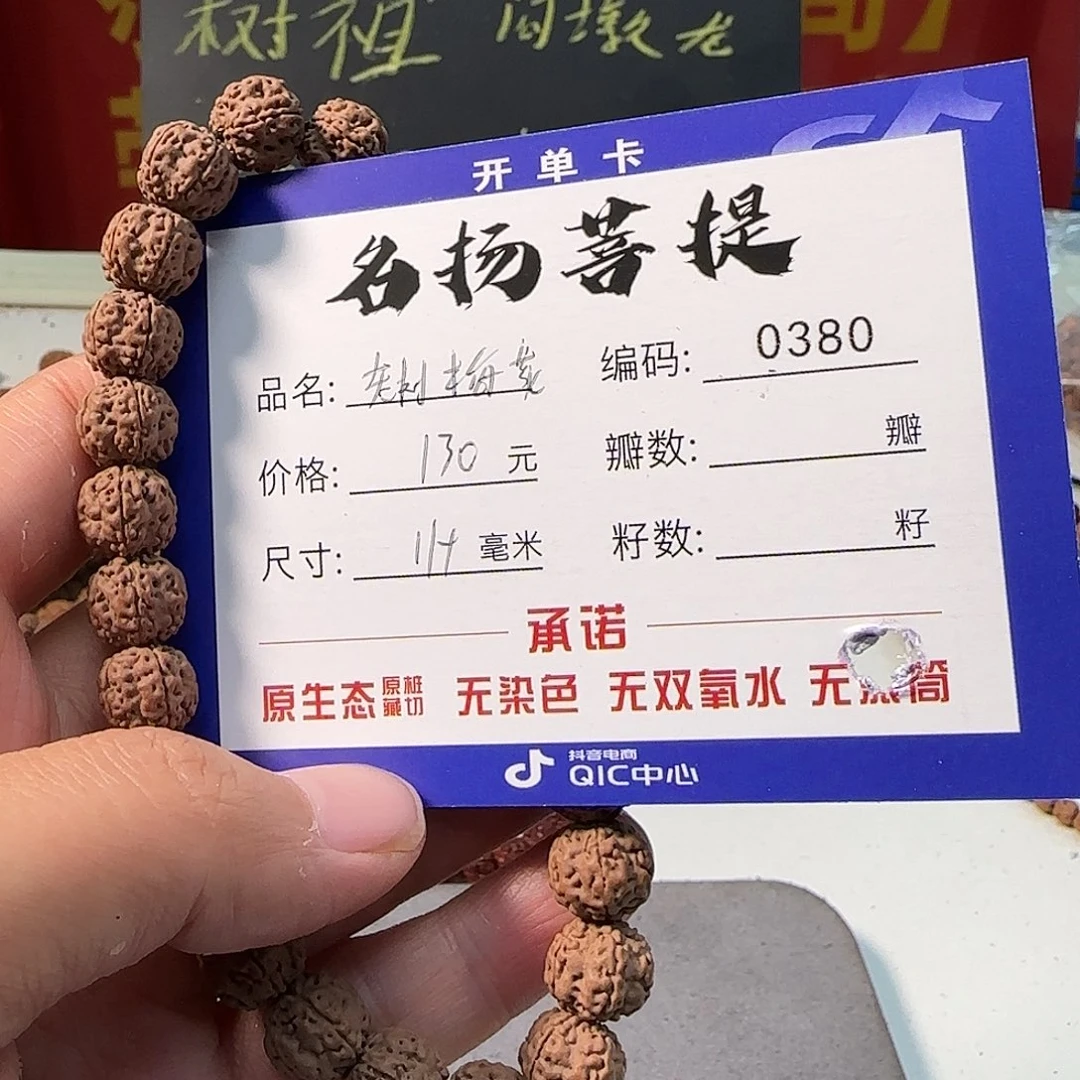 树祖 肉墩龙
开单卡
名扬菩提
品名: 编码: 0380
价格: 130 元 瓣数: 瓣
尺寸: 114 毫米 籽数: 籽
承诺
原生态 原桩藏切 无染色 无双氧水 无 筒
抖音电商
QIC中心